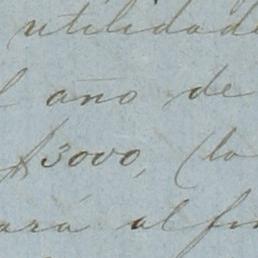 utilidad
año de
$3000, (la
ará al fin